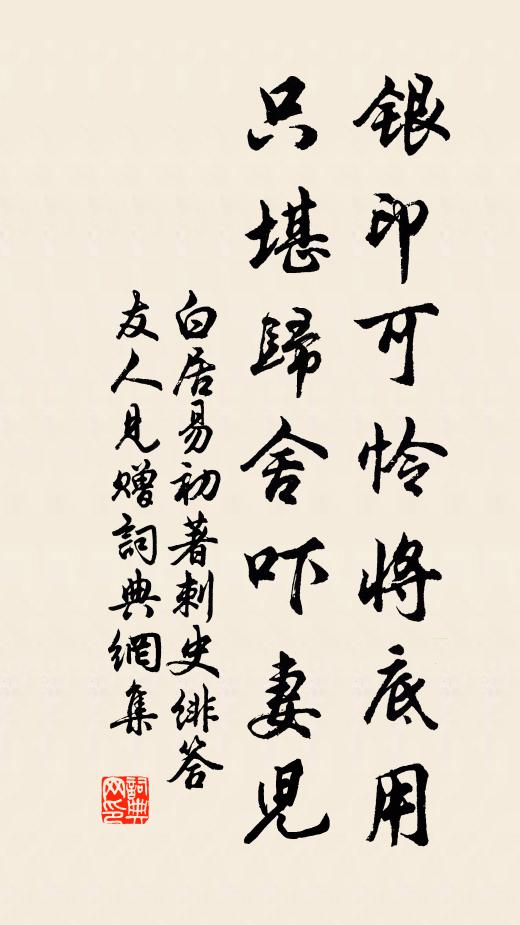 銀印可怜將底用
只堪歸舍吓妻児
白居易初著刺史緋答
友人見贈詞典網集
詞典
网印